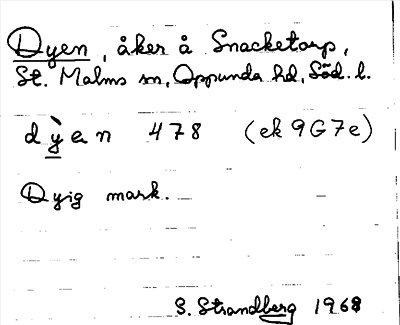 Dyen, åker å Snacketorp,
St. Malms sn, Oppunda hd, Söd. l.
dỳen 478 (ek 9G7e)
Dyig mark.
S. Strandberg 1968